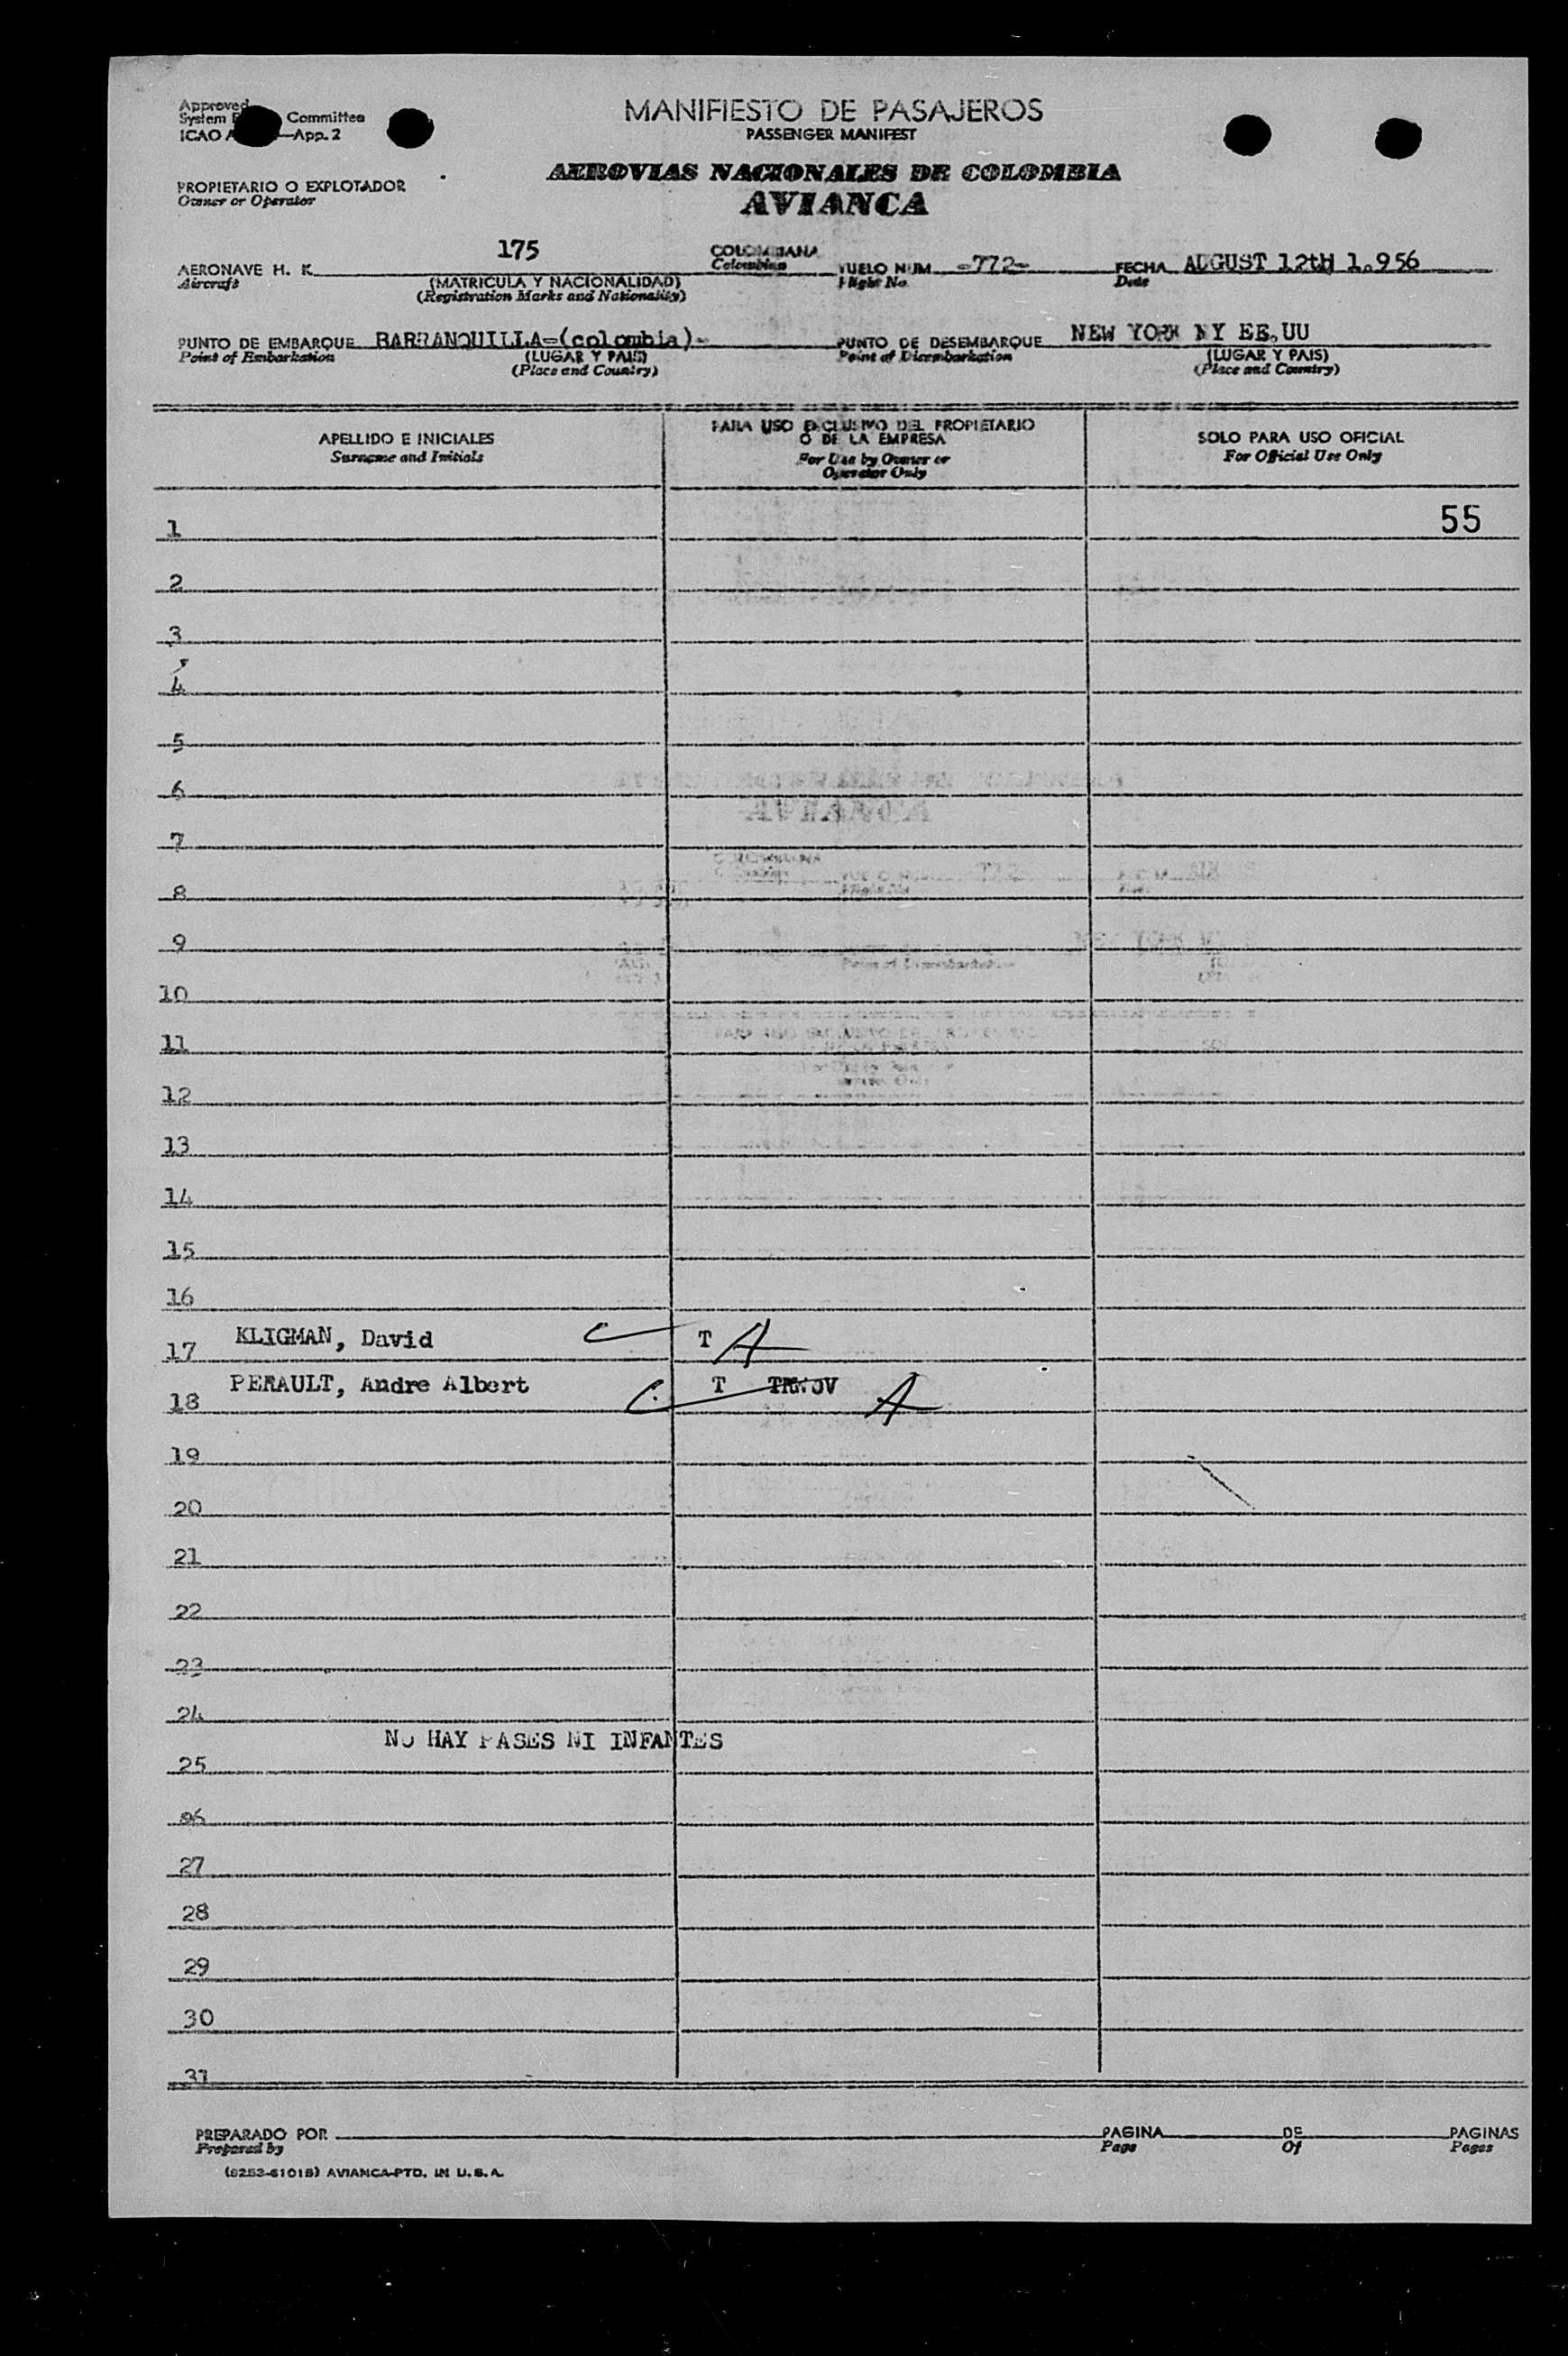 Approved
System Committee
ICAO A —App. 2
MANIFIESTO DE PASAJEROS
PASSENGER MANIFEST
AEROVIAS NACIONALES DE COLOMBIA
AVIANCA
PROPIETARIO O EXPLOTADOR
Owner or Operator
AERONAVE H. K. 175 COLOMBIANA VUELO NUM -772- FECHA AUGUST 12tH 1.956
Aircraft (MATRICULA Y NACIONALIDAD) Colombian Flight No. Date
(Registration Marks and Nationality)
PUNTO DE EMBARQUE BARRANQUILLA=(colombia)- PUNTO DE DESEMBARQUE NEW YORK NY EE,UU
Point of Embarkation (LUGAR Y PAIS) Point of Disembarkation (LUGAR Y PAIS)
(Place and Country) (Place and Country)
APELLIDO E INICIALES
Surname and Initials
PARA USO EXCLUSIVO DEL PROPIETARIO
O DE LA EMPRESA
For Use by Owner or
Operator Only
SOLO PARA USO OFICIAL
For Official Use Only
1 55
2
3
4
5
6
7
8
9
10
11
12
13
14
15
16
17 KLIGMAN, David T A
18 PERAULT, Andre Albert T A
19
20
21
22
23
24
NO HAY PASES NI INFANTES
25
26
27
28
29
30
31
PREPARADO POR PAGINA DE PAGINAS
Prepared by Page Of Pages
(8253-61018) AVIANCA-PTD. IN U.S.A.